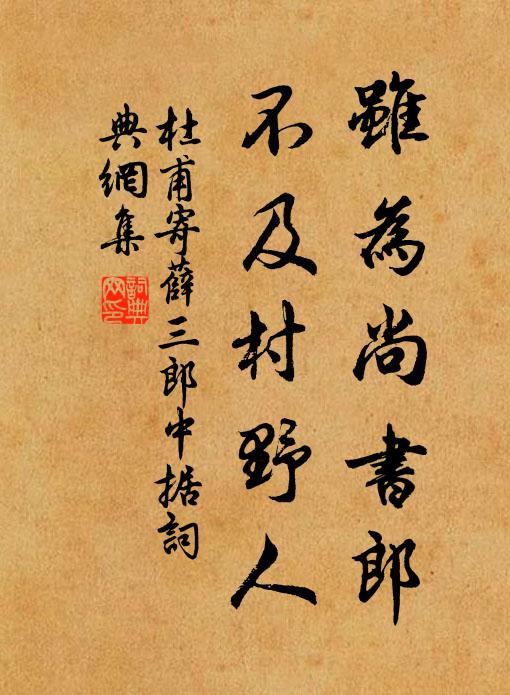 雖為尚書郎
不及村野人
杜甫寄薛三郎中据詞
典網集
詞典
网印